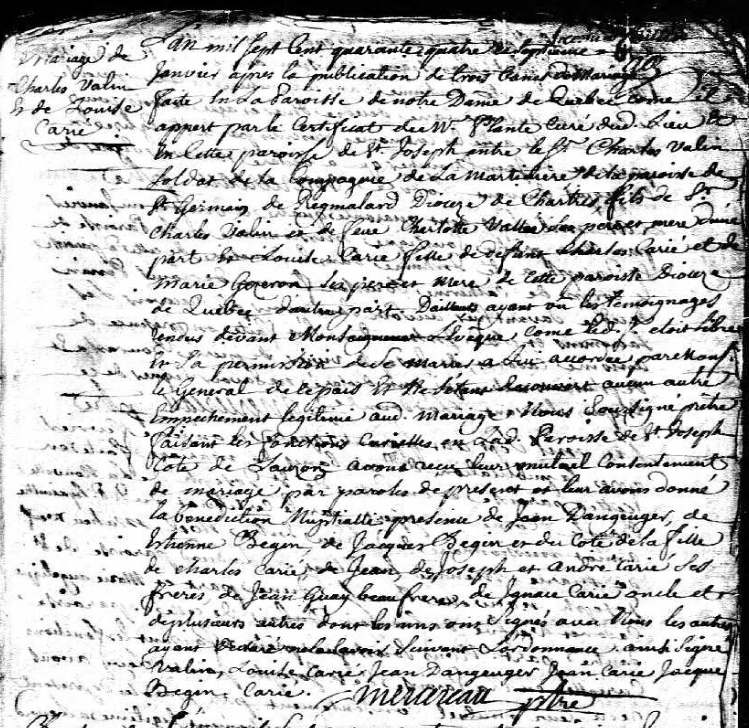 Mariage de
Charles Valin
& de Louise
Carié
L'an mil sept cent quarante quatre le septieme
Janvier apres la publication de trois bans de Mariage
faite en la Paroisse de notre Dame de Quebec come il
appert par le Certificat de Mr. Plante curé dud. Lieu et
en cette paroisse de St. Joseph entre le Sr. Charles Valin
soldat de la Compagnie de La Martiniere de la paroisse de
St Germain de Regmalard Dioceze de Chartres fils de Sr
Charles Valin et de feue Charlotte Vallée ses pere et mere d'une
part et Louise Carié fille de defunt Charles Carié et de
Marie Gozeron ses pere et mere de cette paroisse Dioceze
de Quebec d'autre part D'ailleurs ayant vu les temoignages
rendus devant Monseigneur L'Evêque come led. Sr. etoit libre
Et la permission de se marier a lui accordée par Mons.
le General de ce païs Et ne setant decouvert aucun autre
Empechement legitime aud. mariage Nous soussigné prêtre
faisant les fonctions Curialles en lad. Paroisse de St Joseph
Cote de Lauzon avons recu leur mutuel Consentement
de mariage par paroles de present et leur avons donné
la benediction Nuptialle presence de Jean Dangeuger, de
Etienne Begin, de Jacques Begin et du Coté de la fille
de Charles Carié, de Jean, de Joseph et André Carié ses
freres de Jean Guay beau frere, de Ignace Carié oncle et
de plusieurs autres dont les uns ont signés avec Nous les autres
ayant declaré ne le savoir suivant L'ordonnance ainsi Signé
Valin, Louise Carié Jean Dangeuger Jean Carié Jacque
Begin, Carié. Mercereau ptre